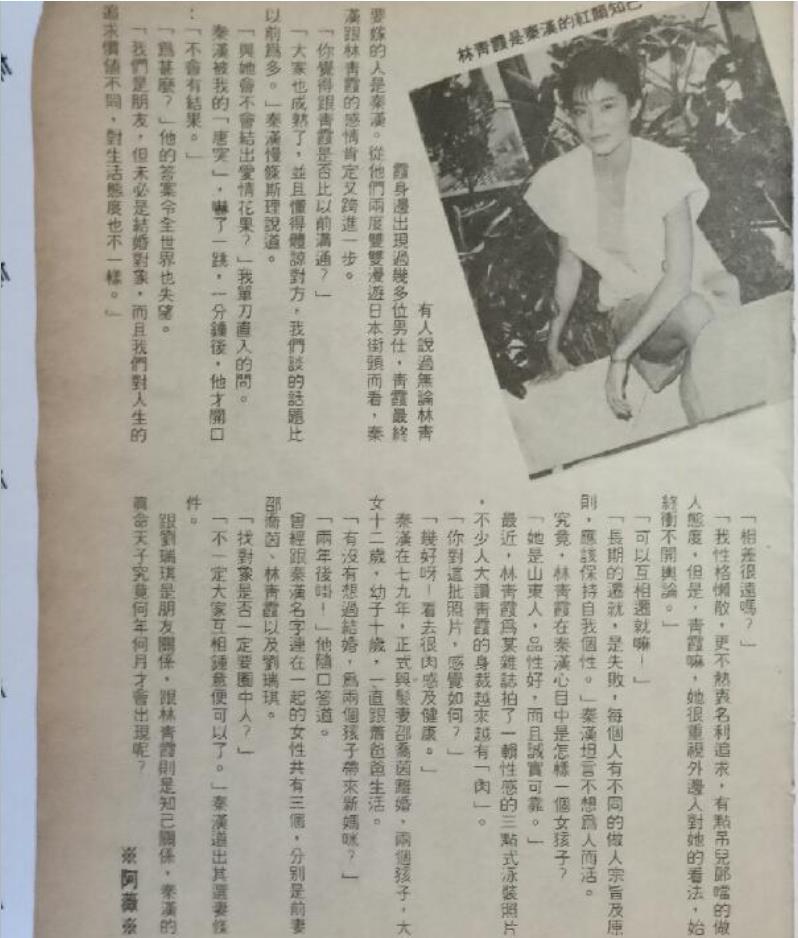 林青霞是秦漢的紅顏知己
有人說過無論林青
霞身邊出現過幾多位男仕，青霞最終
要嫁的人是秦漢。從他們兩度雙雙漫遊日本街頭而看，秦
漢跟林青霞的感情肯定又跨進一步。
「你覺得跟青霞是否比以前溝通？」
「大家也成熟了，並且懂得體諒對方，我們談的話題比
以前爲多。」秦漢慢條斯理說道。
「與她會不會結出愛情花果？」我單刀直入的問。
秦漢被我的「唐突」，嚇了一跳，一分鐘後，他才開口
：「不會有結果。」
「爲甚麼？」他的答案令全世界也失望。
「我們是朋友，但未必是結婚對象，而且我們對人生的
追求價値不同，對生活態度也不一樣。」
「相差很遠嗎？」
「我性格懶散，更不熱衷名利追求，有點吊兒郎噹的做
人態度，但是，青霞嘛，她很重視外邊人對她的看法，始
終衝不開輿論。」
「可以互相遷就嘛！」
「長期的遷就，是失敗，每個人有不同的做人宗旨及原
則，應該保持自我個性。」秦漢坦言不想爲人而活。
究竟，林青霞在秦漢心目中是怎樣一個女孩子？
「她是山東人，品性好，而且誠實可靠。」
最近，林青霞爲某雜誌拍了一輯性感的三點式泳裝照片
，不少人大讚青霞的身裁越來越有「肉」。
「你對這批照片，感覺如何？」
「幾好呀！看去很肉感及健康。」
秦漢在七九年，正式與髮妻邵喬茵離婚，兩個孩子，大
女十二歲，幼子十歲，一直跟蕭爸爸生活。
「有沒有想過結婚，爲兩個孩子帶來新媽咪？」
「兩年後啩！」他隨口答道。
曾經跟秦漢名字連在一起的女性共有三個，分別是前妻
邵喬茵、林青霞以及劉瑞琪。
「找對象是否一定要圈中人？」
「不一定大家互相鍾意便可以了。」秦漢道出其選妻條
件。
跟劉瑞琪是朋友關係，跟林青霞則是知己關係，秦漢的
眞命天子究竟何年何月才會出現呢？
※阿薇※